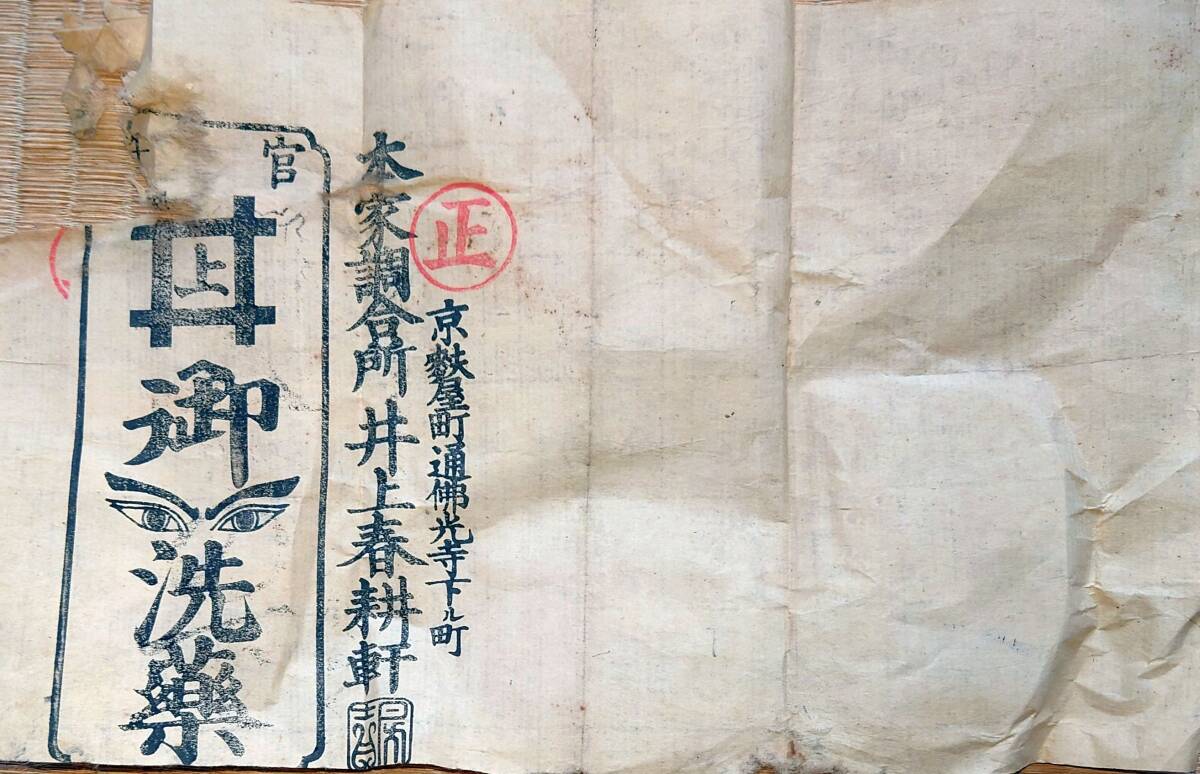 正
京麩屋町通佛光寺下ル町
本家調合所井上春耕軒
官
井上
御洗藥